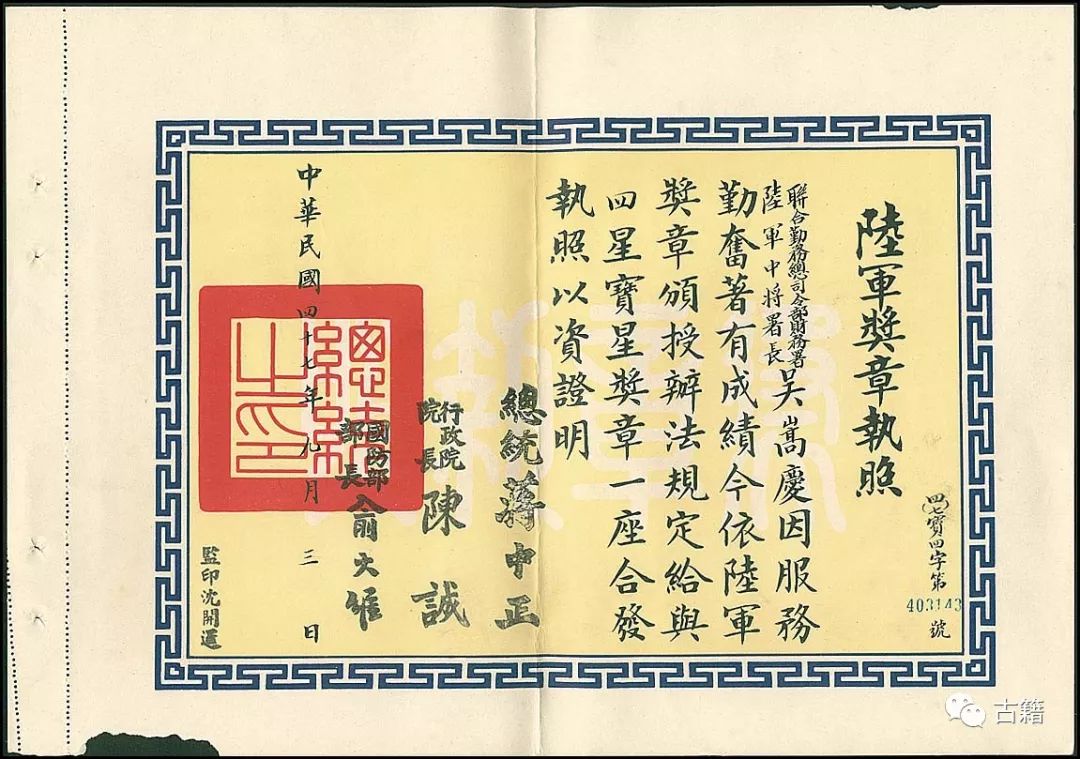 陸軍獎章執照
四七寶四字第403143號
聯合勤務總司令部財務署
陸軍中將署長
吳嵩慶因服務
勤奮著有成績今依陸軍
獎章頒授辦法規定給與
四星寶星獎章一座合發
執照以資證明
總統蔣中正
行政院
院長
陳誠
國防部
部長
俞大維
中華民國四十七年九月三日
總統
之印
監印沈開
古籍